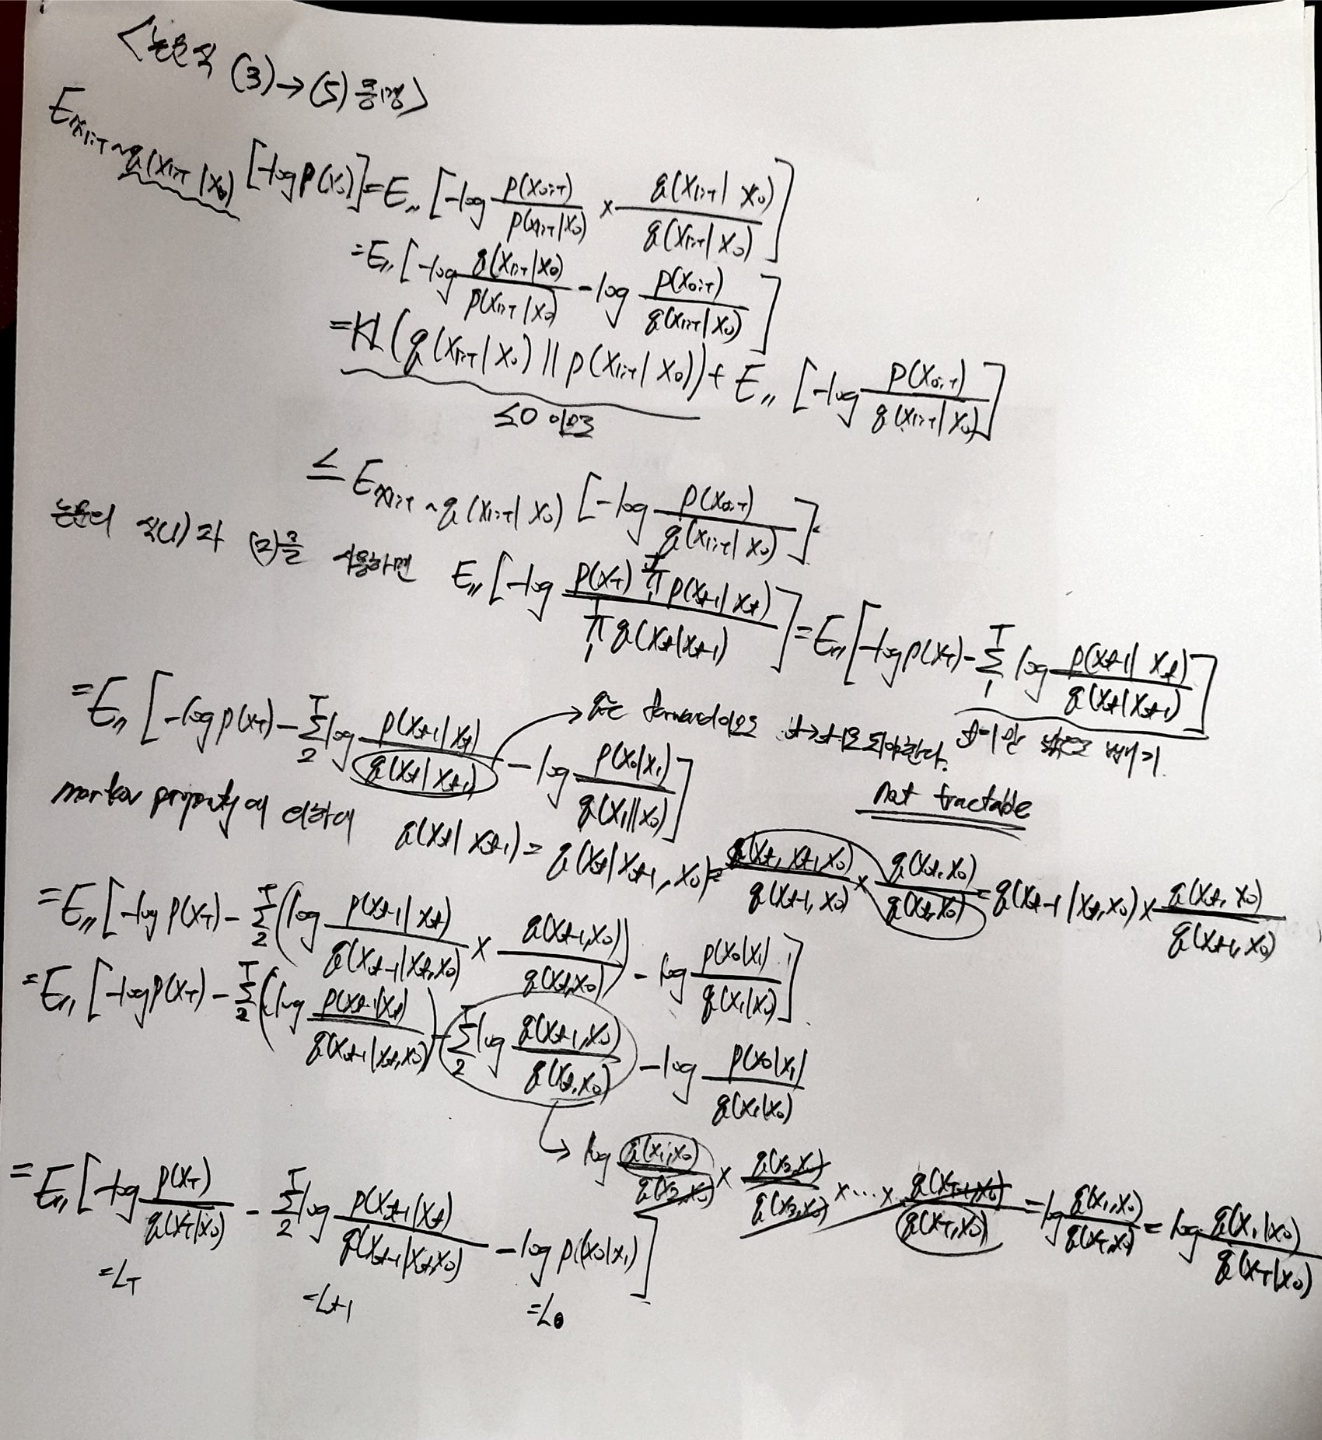 <논문식 (3)→(5) 증명>
E_{x_{1:T}~q(x_{1:T}|x_0)} [-log p(x_0)] = E_〃 [-log p(x_{0:T})/p(x_{1:T}|x_0) × q(x_{1:T}|x_0)/q(x_{1:T}|x_0)]
= E_〃 [-log q(x_{1:T}|x_0)/p(x_{1:T}|x_0) - log p(x_{0:T})/q(x_{1:T}|x_0)]
= KL(q(x_{1:T}|x_0) || p(x_{1:T}|x_0)) + E_〃 [-log p(x_{0:T})/q(x_{1:T}|x_0)]
≤0 이므로
≤ E_{x_{1:T}~q(x_{1:T}|x_0)} [-log p(x_{0:T})/q(x_{1:T}|x_0)]
논문의 식(1)과 (2)를 사용하면 E_〃 [-log p(x_T) ∏_1^T p(x_{t-1}|x_t) / ∏_1^T q(x_t|x_{t-1})] = E_〃 [-log p(x_T) - Σ_1^T log p(x_{t-1}|x_t)/q(x_t|x_{t-1})]
= E_〃 [-log p(x_T) - Σ_2^T log p(x_{t-1}|x_t)/q(x_t|x_{t-1}) - log p(x_0|x_1)/q(x_1|x_0)]
→ q는 forward이므로 t→t-1로 되야한다.
not tractable
markov property에 의하여 q(x_t|x_{t-1}) = q(x_t|x_{t-1}, x_0) = q(x_t, x_{t-1}, x_0)/q(x_{t-1}, x_0) × q(x_t, x_0)/q(x_t, x_0) = q(x_{t-1}|x_t, x_0) × q(x_t, x_0)/q(x_{t-1}, x_0)
= E_〃 [-log p(x_T) - Σ_2^T (log p(x_{t-1}|x_t)/q(x_{t-1}|x_t, x_0) × q(x_{t-1}, x_0)/q(x_t, x_0)) - log p(x_0|x_1)/q(x_1|x_0)]
= E_〃 [-log p(x_T) - Σ_2^T (log p(x_{t-1}|x_t)/q(x_{t-1}|x_t, x_0)) - Σ_2^T log q(x_{t-1}, x_0)/q(x_t, x_0) - log p(x_0|x_1)/q(x_1|x_0)
→ log q(x_1, x_0)/q(x_2, x_0) × q(x_2, x_0)/q(x_3, x_0) × ... × q(x_{T-1}, x_0)/q(x_T, x_0) = log q(x_1, x_0)/q(x_T, x_0) = log q(x_1|x_0)/q(x_T|x_0)
= E_〃 [-log p(x_T)/q(x_T|x_0) - Σ_2^T log p(x_{t-1}|x_t)/q(x_{t-1}|x_t, x_0) - log p(x_0|x_1)]
=L_T =L_{t-1} =L_0